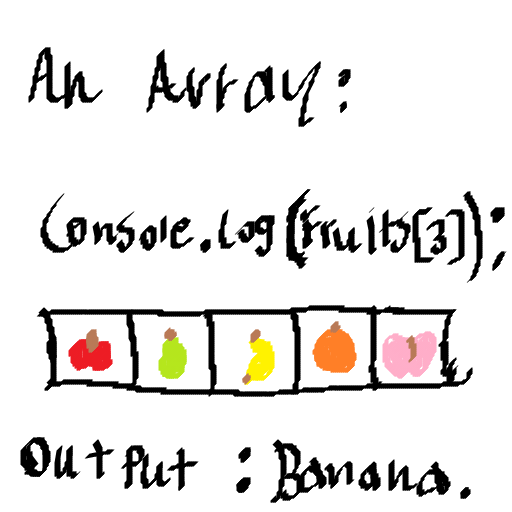 An Array:
Console.log(Fruits[3]);
Output : Banana.